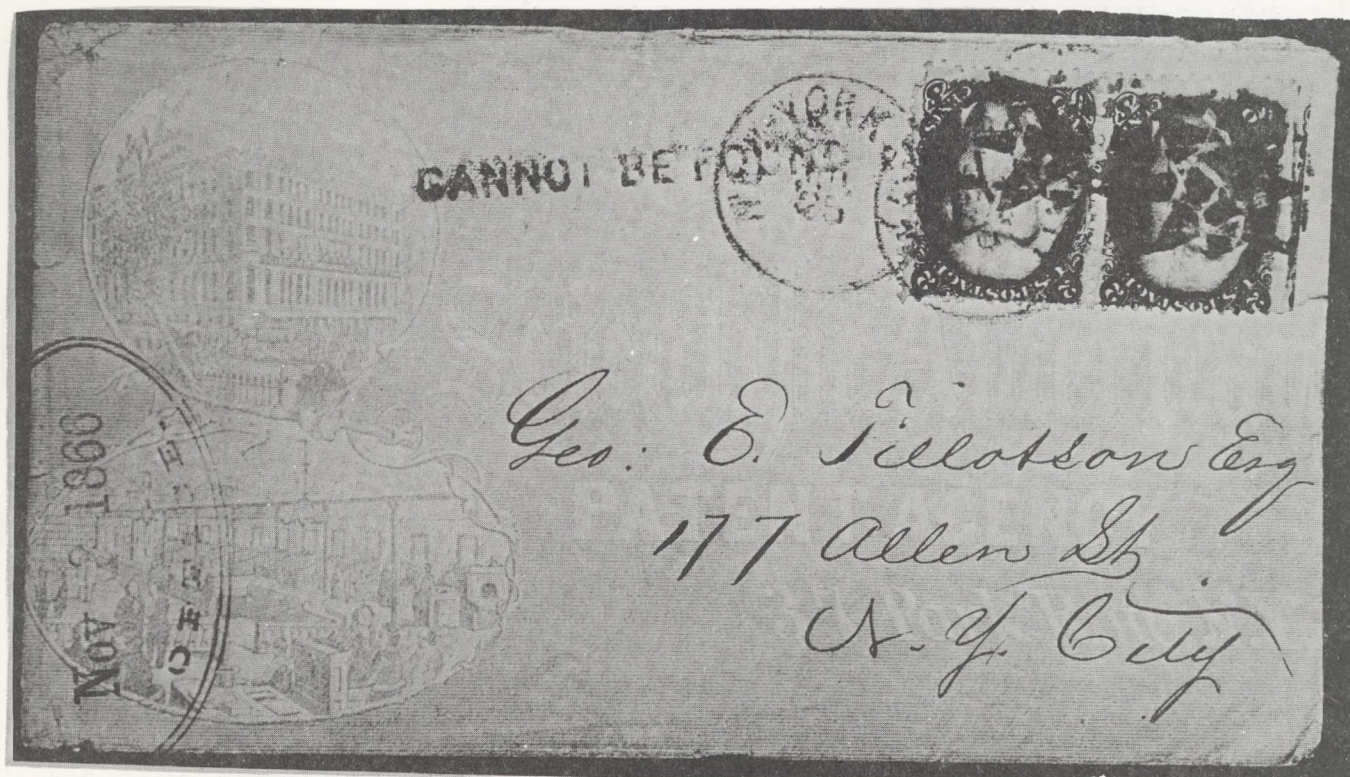 CANNOT BE FOUND
NEW-YORK
OCT
25
Geo: E. Tillotson Esq
177 Allen St.
N. Y. City
NOV 1866